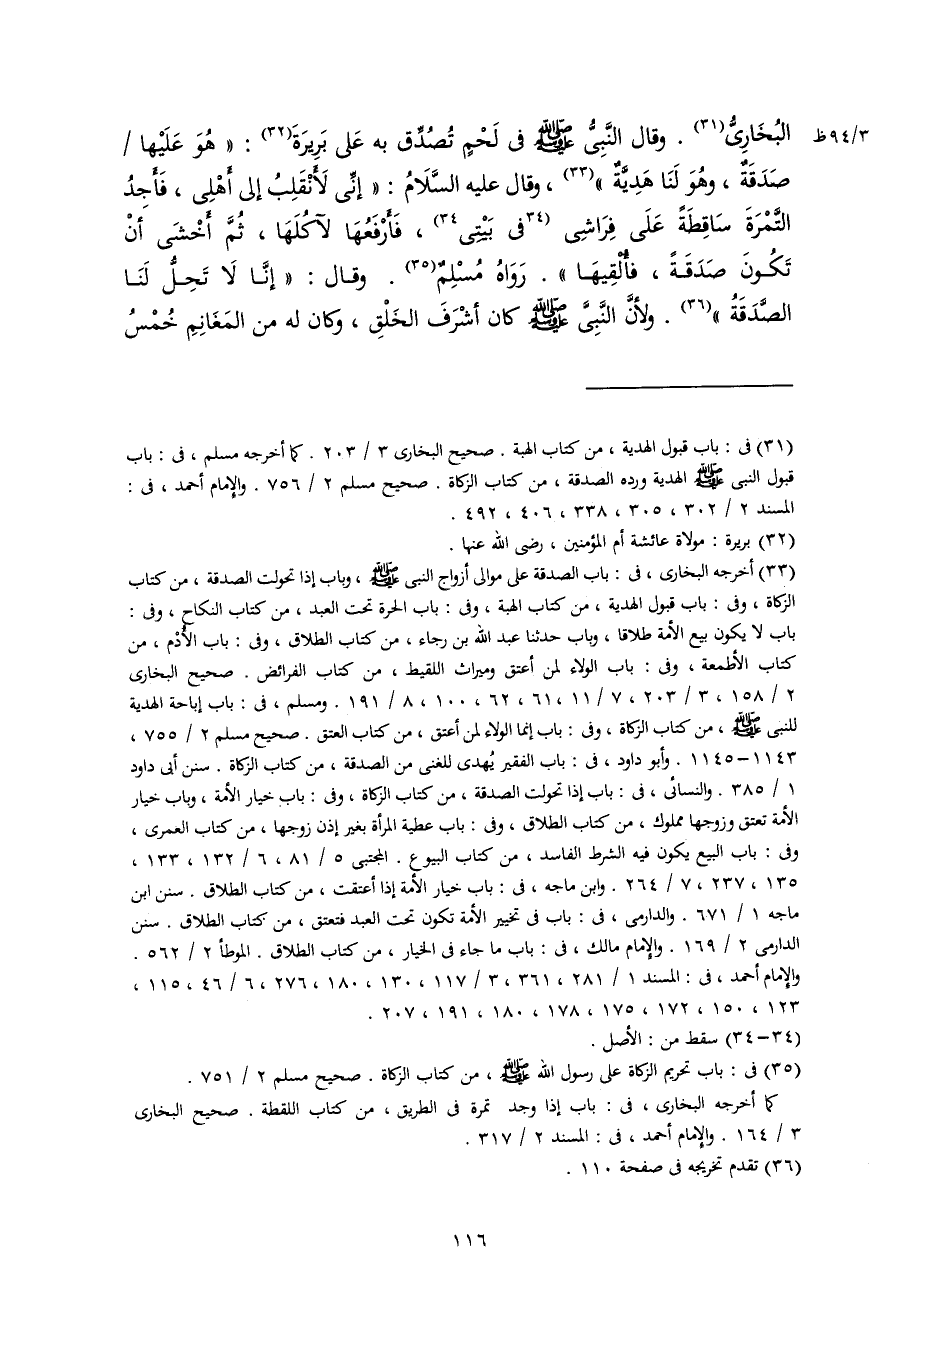 ٩٤/٣ظ البُخَارِىُّ(٣١) . وقال النَّبِىُّ ﷺ فى لَحْمٍ تُصُدِّق به عَلى بَرِيرَةَ(٣٢) : « هُوَ عَلَيْها /
صَدَقَةٌ ، وهُوَ لَنَا هَدِيَّةٌ »(٣٣) ، وقال عليه السَّلَامُ : « إنِّى لَأَنْقَلِبُ إلى أَهْلِى ، فَأَجِدُ
التَّمْرَةَ سَاقِطَةً عَلَى فِرَاشِى (٣٤فى بَيْتِى٣٤) ، فَأَرْفَعُهَا لآكُلَهَا ، ثُمَّ أَخْشَى أنْ
تَكُونَ صَدَقَةً ، فأُلْقِيهَا » . رَوَاهُ مُسْلِمٌ(٣٥) . وقال : « إنَّا لَا تَحِلُّ لَنَا
الصَّدَقَةُ »(٣٦) . ولأنَّ النَّبِىَّ ﷺ كان أشْرَفَ الخَلْقِ ، وكان له من المَغَانِمِ خُمْسُ
(٣١) فى : باب قبول الهدية ، من كتاب الهبة . صحيح البخارى ٣ / ٢٠٣ . كما أخرجه مسلم ، فى : باب
قبول النبى ﷺ الهدية ورده الصدقة ، من كتاب الزكاة . صحيح مسلم ٢ / ٧٥٦ . والإمام أحمد ، فى :
المسند ٢ / ٣٠٢ ، ٣٠٥ ، ٣٣٨ ، ٤٠٦ ، ٤٩٢ .
(٣٢) بريرة : مولاة عائشة أم المؤمنين ، رضى الله عنها .
(٣٣) أخرجه البخارى ، فى : باب الصدقة على موالى أزواج النبى ﷺ ، وباب إذا تحولت الصدقة ، من كتاب
الزكاة ، وفى : باب قبول الهدية ، من كتاب الهبة ، وفى : باب الحرة تحت العبد ، من كتاب النكاح ، وفى :
باب لا يكون بيع الأمة طلاقا ، وباب حدثنا عبد الله بن رجاء ، من كتاب الطلاق ، وفى : باب الأُدْم ، من
كتاب الأطعمة ، وفى : باب الولاء لمن أعتق وميراث اللقيط ، من كتاب الفرائض . صحيح البخارى
٢ / ١٥٨ ، ٣ / ٢٠٣ ، ٧ / ١١ ، ٦١ ، ٦٢ ، ١٠٠ ، ٨ / ١٩١ . ومسلم ، فى : باب إباحة الهدية
للنبى ﷺ ، من كتاب الزكاة ، وفى : باب إنما الولاء لمن أعتق ، من كتاب العتق . صحيح مسلم ٢ / ٧٥٥ ،
١١٤٣–١١٤٥ . وأبو داود ، فى : باب الفقير يُهدى للغنى من الصدقة ، من كتاب الزكاة . سنن أبى داود
١ / ٣٨٥ . والنسائى ، فى : باب إذا تحولت الصدقة ، من كتاب الزكاة ، وفى : باب خيار الأمة ، وباب خيار
الأمة تعتق وزوجها مملوك ، من كتاب الطلاق ، وفى : باب عطية المرأة بغير إذن زوجها ، من كتاب العمرى ،
وفى : باب البيع يكون فيه الشرط الفاسد ، من كتاب البيوع . المجتبى ٥ / ٨١ ، ٦ / ١٣٢ ، ١٣٣ ،
١٣٥ ، ٢٣٧ ، ٧ / ٢٦٤ . وابن ماجه ، فى : باب خيار الأمة إذا أعتقت ، من كتاب الطلاق . سنن ابن
ماجه ١ / ٦٧١ . والدارمى ، فى : باب فى تخيير الأمة تكون تحت العبد فتعتق ، من كتاب الطلاق . سنن
الدارمى ٢ / ١٦٩ . والإمام مالك ، فى : باب ما جاء فى الخيار ، من كتاب الطلاق . الموطأ ٢ / ٥٦٢ .
والإمام أحمد ، فى : المسند ١ / ٢٨١ ، ٣٦١ ، ٣ / ١١٧ ، ١٣٠ ، ١٨٠ ، ٢٧٦ ، ٦ / ٤٦ ، ١١٥ ،
١٢٣ ، ١٥٠ ، ١٧٢ ، ١٧٥ ، ١٧٨ ، ١٨٠ ، ١٩١ ، ٢٠٧ .
(٣٤–٣٤) سقط من : الأصل .
(٣٥) فى : باب تحريم الزكاة على رسول الله ﷺ ، من كتاب الزكاة . صحيح مسلم ٢ / ٧٥١ .
كما أخرجه البخارى ، فى : باب إذا وجد تمرة فى الطريق ، من كتاب اللقطة . صحيح البخارى
٣ / ١٦٤ . والإمام أحمد ، فى : المسند ٢ / ٣١٧ .
(٣٦) تقدم تخريجه فى صفحة ١١٠ .
١١٦